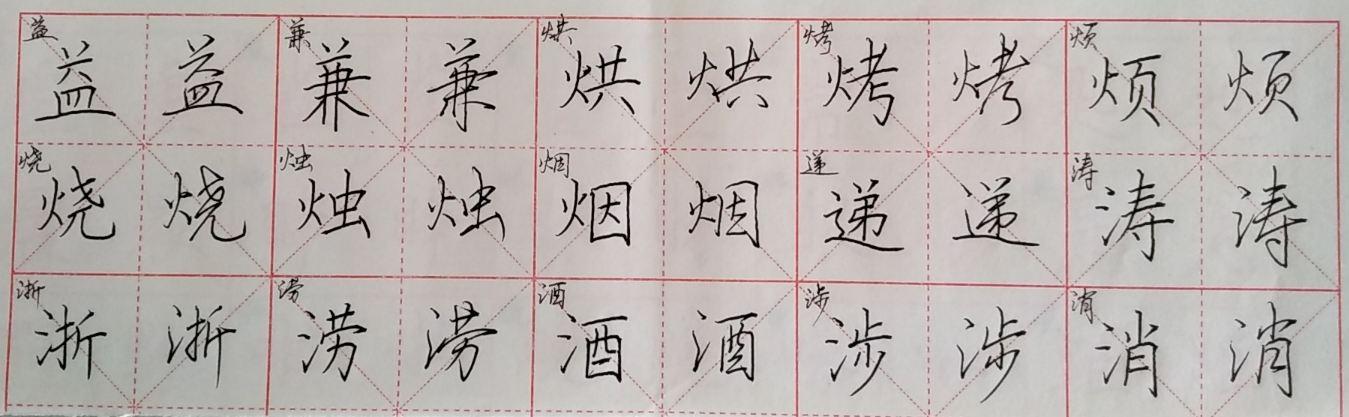 益 益 益 兼 兼 兼 烘 烘 烘 烤 烤 烤 烦 烦 烦
烧 烧 烧 烛 烛 烛 烟 烟 烟 递 递 递 涛 涛 涛
浙 浙 浙 涝 涝 涝 酒 酒 酒 涉 涉 涉 消 消 消